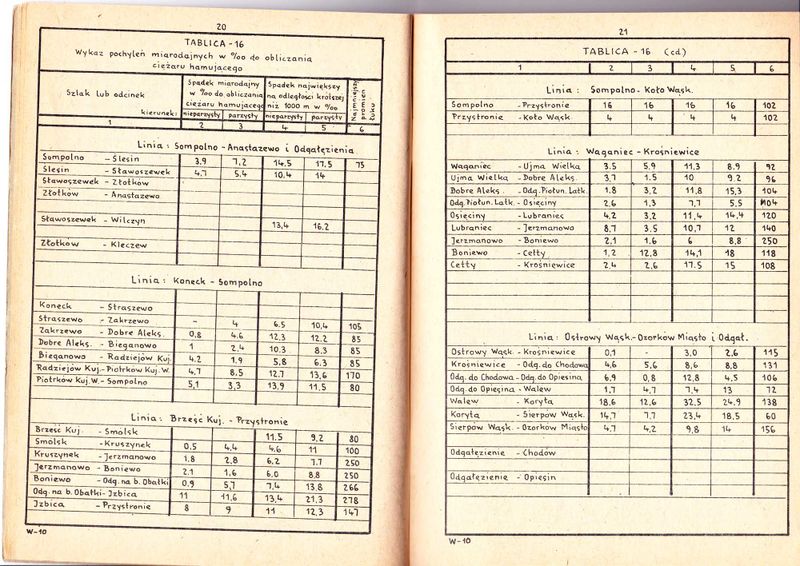 20
TABLICA - 16
Wykaz pochyleń miarodajnych w ‰ do obliczania
ciężaru hamującego
Szlak lub odcinek
kierunek:
Spadek miarodajny w ‰ do obliczania ciężaru hamującego
Spadek największy na odległości krótszej niż 1000 m w ‰
Najmniejszy promień łuku
nieparzysty parzysty nieparzysty parzysty
1 2 3 4 5 6
Linia: Sompolno - Anastazewo i Odgałęzienia
Sompolno - Ślesin 3,9 7,2 14,5 17,5 75
Ślesin - Stawoszewek 4,7 5,4 10,4 14
Stawoszewek - Złotków
Złotków - Anastazewo
Stawoszewek - Wilczyn 13,4 16,2
Złotków - Kleczew
Linia: Koneck - Sompolno
Koneck - Straszewo
Straszewo - Zakrzewo - 4 6,5 10,4 105
Zakrzewo - Dobre Aleks. 0,8 4,6 12,3 12,2 85
Dobre Aleks. - Bieganowo 1 2,4 10,3 8,3 85
Bieganowo - Radziejów Kuj. 4,2 1,9 5,8 6,3 85
Radziejów Kuj. - Piotrków Kuj. W. 4,7 8,5 12,7 13,6 170
Piotrków Kuj. W. - Sompolno 5,1 3,3 13,9 11,5 80
Linia: Brześć Kuj. - Przystronie
Brześć Kuj. - Smólsk 11,5 9,2 80
Smólsk - Kruszynek 0,5 4,4 4,6 11 100
Kruszynek - Jerzmanowo 1,8 2,8 6,2 7,7 250
Jerzmanowo - Boniewo 2,1 1,6 6,0 8,8 250
Boniewo - Odg. na b. Obałki 0,9 5,7 7,4 13,8 266
Odg. na b. Obałki - Izbica 11 11,6 13,4 21,3 278
Izbica - Przystronie 8 9 11 12,3 147
W-10
21
TABLICA - 16 (cd.)
1 2 3 4 5 6
Linia: Sompolno - Koło Wąsk.
Sompolno - Przystronie 16 16 16 16 102
Przystronie - Koło Wąsk. 4 4 4 4 102
Linia: Waganiec - Krośniewice
Waganiec - Ujma Wielka 3,5 5,9 11,3 8,9 92
Ujma Wielka - Dobre Aleks. 3,7 1,5 10 9,2 96
Dobre Aleks. - Odg. Piołun. Latk. 1,8 3,2 11,8 15,3 104
Odg. Piołun. Latk. - Osięciny 2,6 1,3 7,7 5,5 104
Osięciny - Lubraniec 4,2 3,2 11,4 14,4 120
Lubraniec - Jerzmanowo 8,7 3,5 10,7 12 140
Jerzmanowo - Boniewo 2,1 1,6 6 8,8 250
Boniewo - Cetty 1,2 12,8 14,1 18 118
Cetty - Krośniewice 2,4 2,6 17,5 15 108
Linia: Ostrowy Wąsk. - Ozorków Miasto i Odgał.
Ostrowy Wąsk. - Krośniewice 0,1 - 3,0 2,6 115
Krośniewice - Odg. do Chodowa 4,6 5,6 8,6 8,8 131
Odg. do Chodowa - Odg. do Opiesina 6,9 0,8 12,8 4,5 106
Odg. do Opiesina - Walew 1,7 4,7 7,4 13 72
Walew - Koryta 18,6 12,6 32,5 24,9 138
Koryta - Sierpów Wąsk. 14,7 7,7 23,4 18,5 60
Sierpów Wąsk. - Ozorków Miasto 4,7 4,2 9,8 14 156
Odgałęzienie - Chodów
Odgałęzienie - Opiesin
W-10